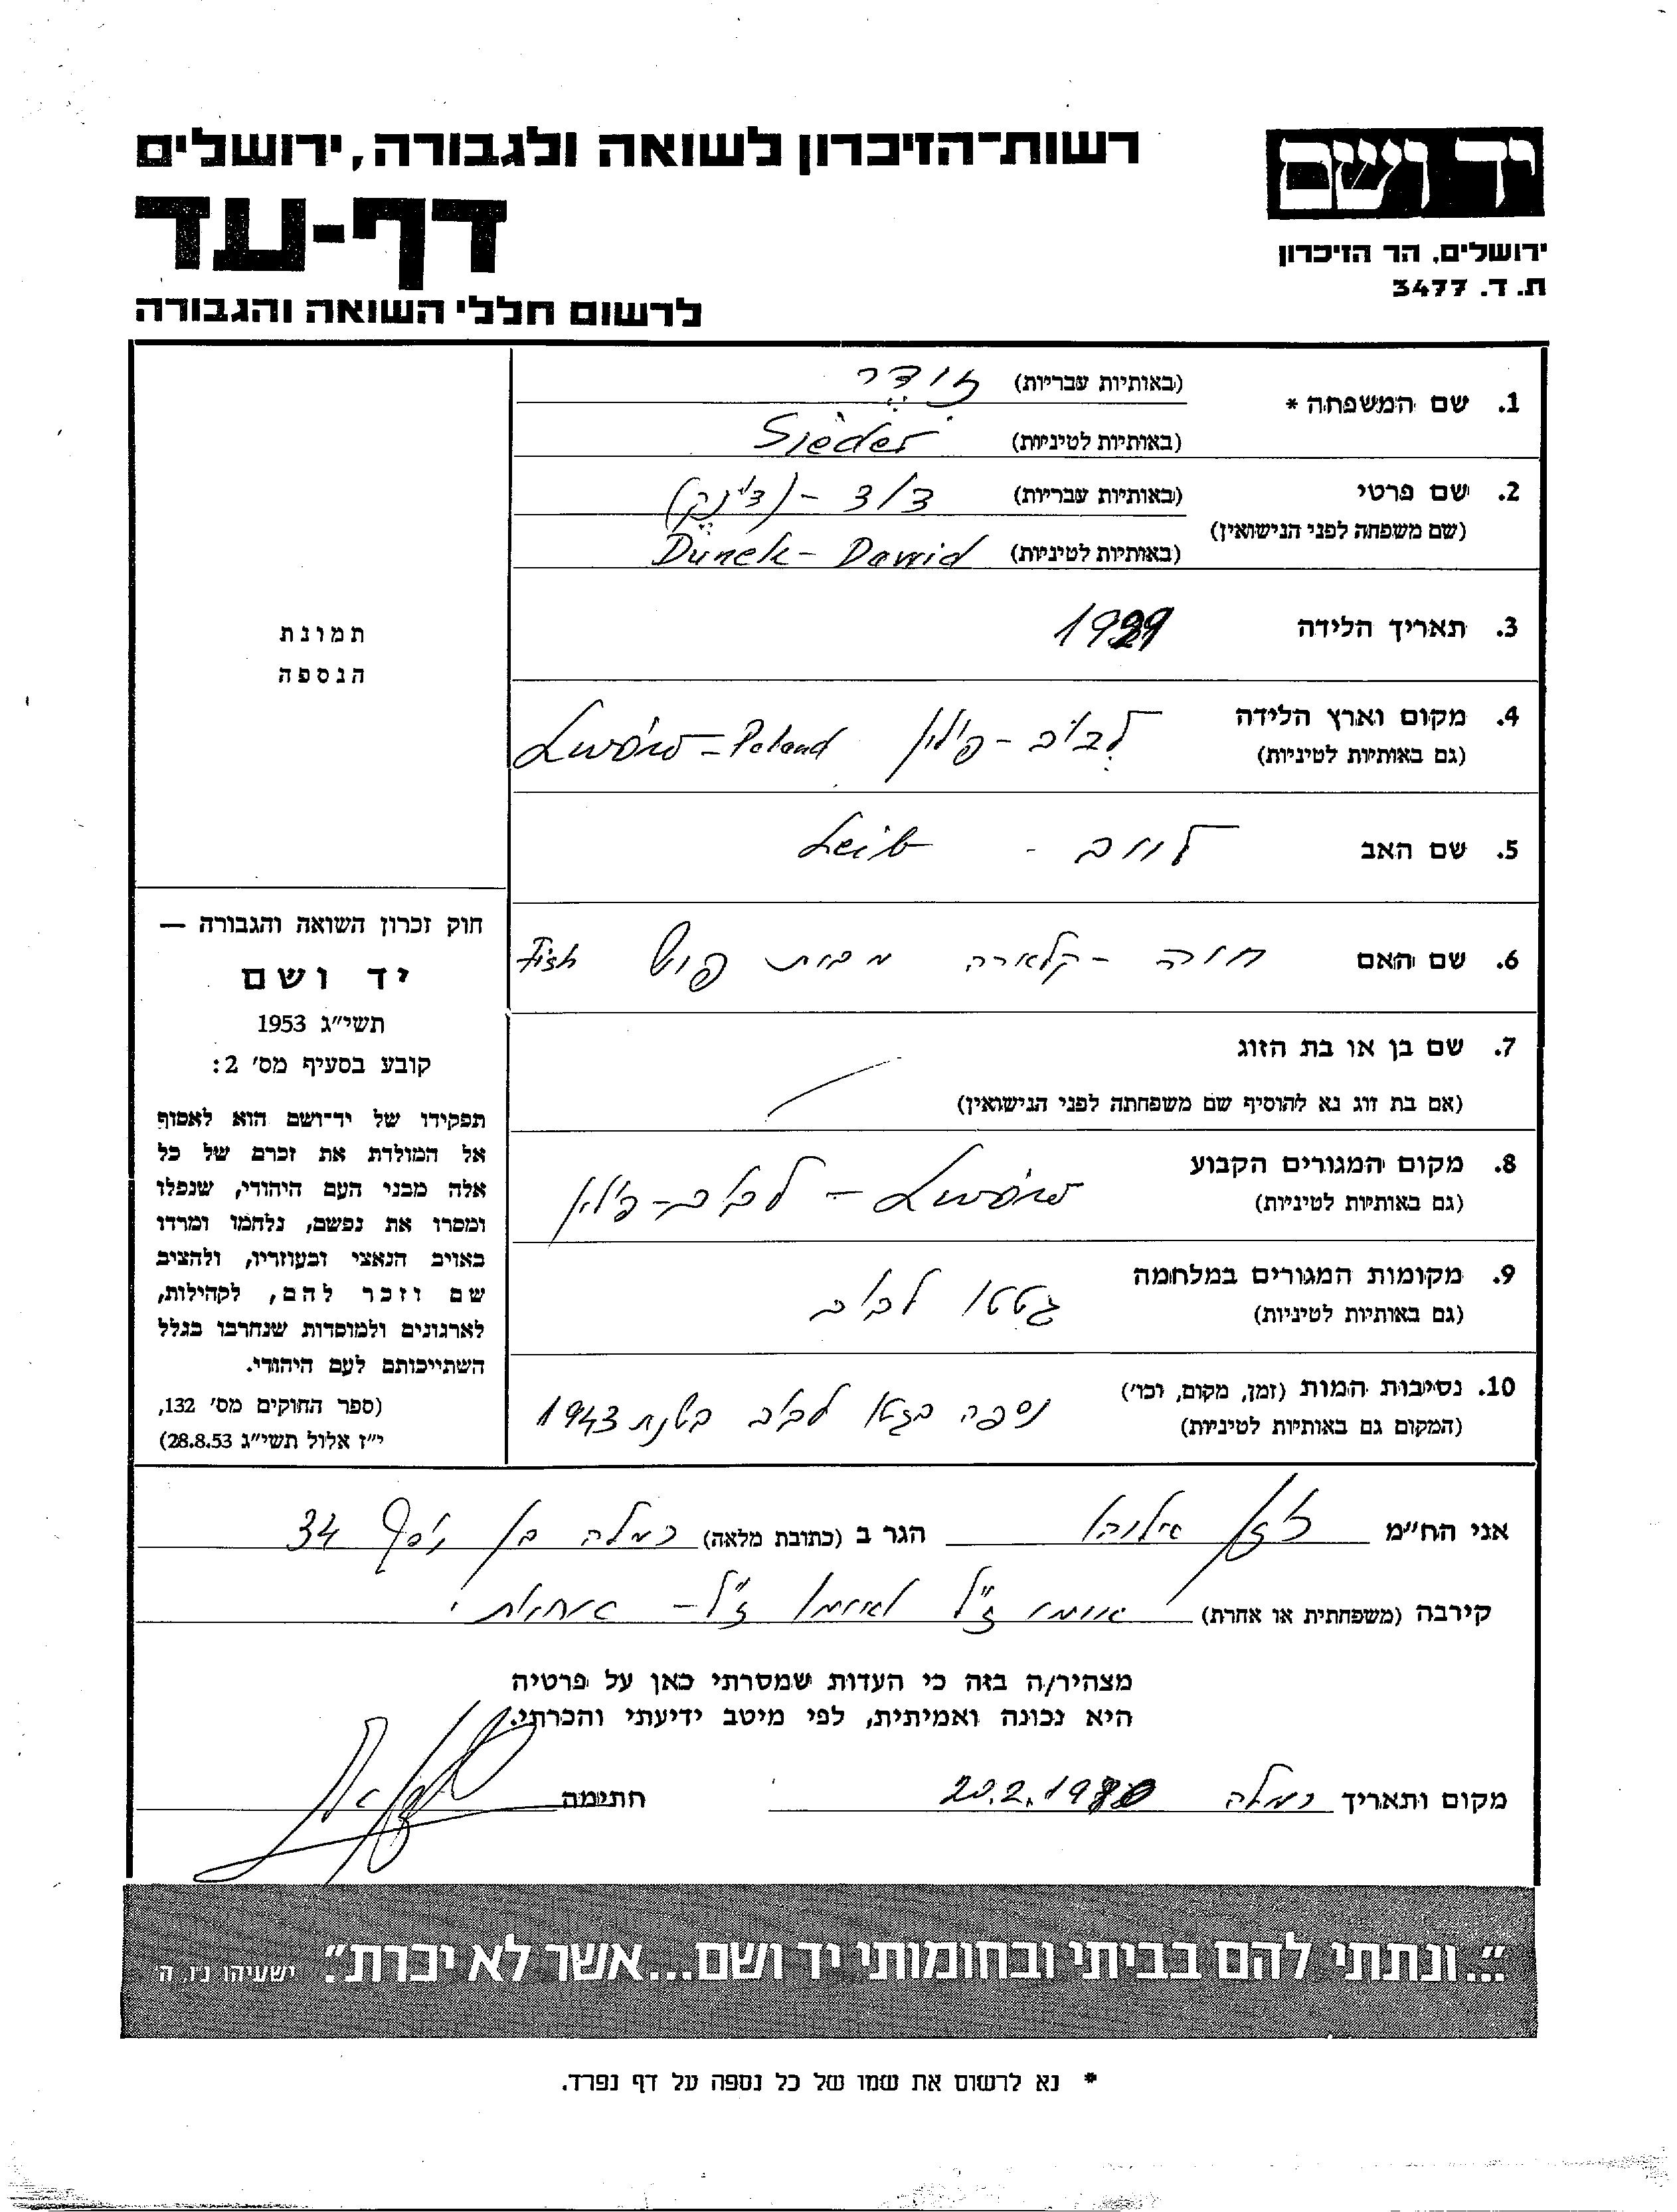 רשות־הזיכרון לשואה ולגבורה, ירושלים
דף-עד
לרשום חללי השואה והגבורה
יד ושם
ירושלים, הר הזיכרון
ת. ד. 3477
1. שם המשפחה *
(באותיות עבריות) זידר
(באותיות לטיניות) Sieder
2. שם פרטי
(שם משפחה לפני הנישואין)
(באותיות עבריות) דוד - (דינק)
(באותיות לטיניות) Dunek - Dawid
3. תאריך הלידה
4. מקום וארץ הלידה לבוב - פולין Lwów - Poland
(גם באותיות לטיניות)
5. שם האב לייב - Leib
6. שם האם חוה - קלארה מבית פיש Fish
7. שם בן או בת הזוג
(אם בת זוג נא להוסיף שם משפחתה לפני הנישואין)
8. מקום המגורים הקבוע Lwów - לבוב - פולין
(גם באותיות לטיניות)
9. מקומות המגורים במלחמה גטטו לבוב
(גם באותיות לטיניות)
10. נסיבות המות (זמן, מקום, וכו') נספה בגטו לבוב בשנת 1943
(המקום גם באותיות לטיניות)
תמונת
הנספה
חוק זכרון השואה והגבורה —
יד ושם
תשי"ג 1953
קובע בסעיף מס' 2:
תפקידו של יד־ושם הוא לאסוף
אל המולדת את זכרם של כל
אלה מבני העם היהודי, שנפלו
ומסרו את נפשם, נלחמו ומרדו
באויב הנאצי ובעוזריו, ולהציב
שם וזכר להם, לקהילות,
לארגונים ולמוסדות שנחרבו בגלל
השתייכותם לעם היהודי.
(ספר החוקים מס' 132,
י"ז אלול תשי"ג 28.8.53)
אני הח"מ הגר ב (כתובת מלאה) רמלה 34
קירבה (משפחתית או אחרת) ז"ל ז"ל -
מצהיר/ה בזה כי העדות שמסרתי כאן על פרטיה
היא נכונה ואמיתית, לפי מיטב ידיעתי והכרתי.
מקום ותאריך רמלה 20.2.1980 חתימה
"...ונתתי להם בביתי ובחומותי יד ושם...אשר לא יכרת". ישעיהו נ"ו, ה'
* נא לרשום את שמו של כל נספה על דף נפרד.